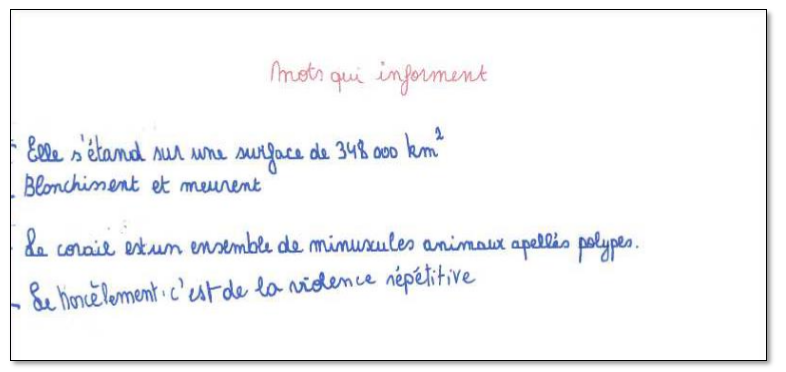 Mots qui informent
- Elle s'étand sur une surface de 348 000 km²
- Blonchissent et meurent
- Le corail est un ensemble de minuxules animaux apellés polypes.
- Le horcèlement : c'est de la violence répétitive